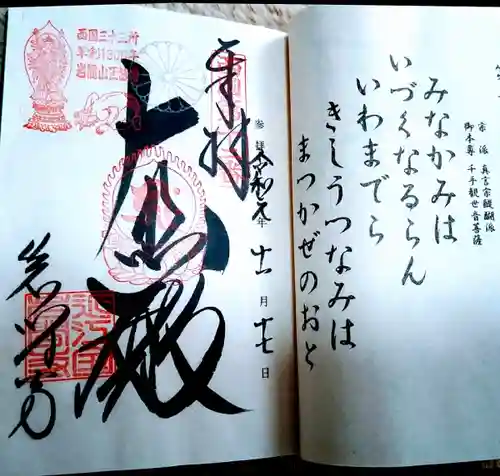 宗派 真言宗醍醐派
御本尊 千手観世音菩薩
みなかみは
いづくなるらん
いわまでら
きしうつなみは
まつかぜのおと
参拝 令和元年 十一月 十七日
奉拝
大悲殿
岩間寺
西国三十三所
草創1300年
岩間山正法寺